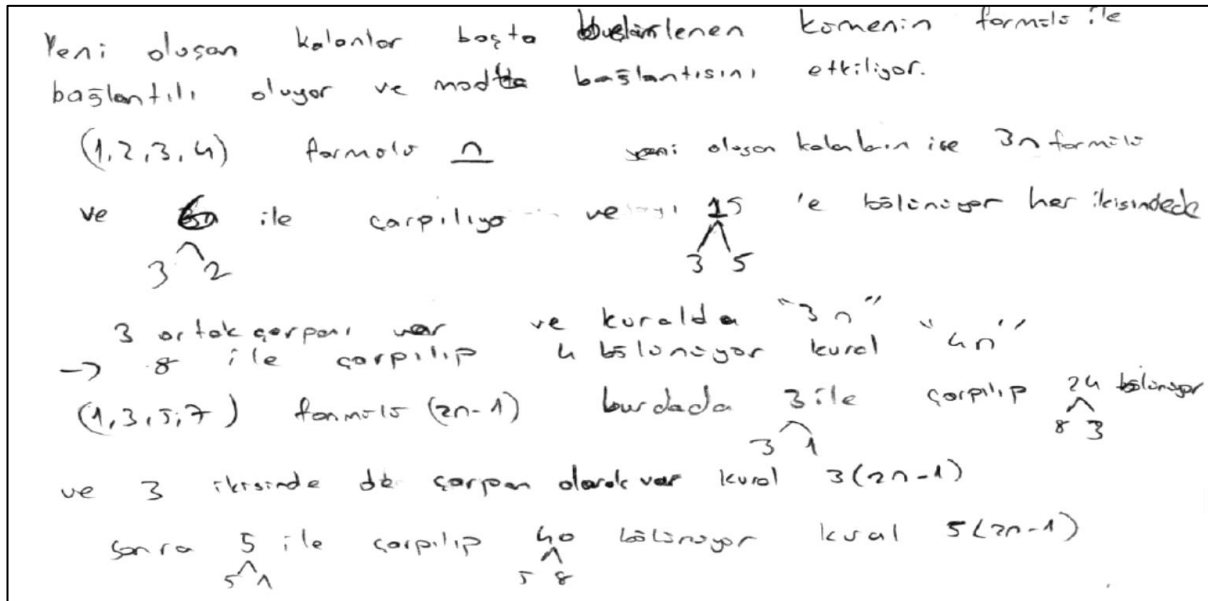 Yeni oluşan kalanlar başta kümenin formülü ile
bağlantılı oluyor ve bağlantısını etkiliyor.
(1,2,3,4) formülü n yeni oluşan kalanların ise 3n formülü
ve ile çarpılıyo ve 15 'e bölünüyor her ikisindede
3 2 3 5
3 ortak çarpanı var ve kuralda "3n"
→ 8 ile çarpılıp 4 bölünüyor kural "4n"
(1,3,5,7) formülü (2n-1) burdada 3 ile çarpılıp 24 bölünüyor
3 1 8 3
ve 3 ikisinde de çarpan olarak var kural 3(2n-1)
sonra 5 ile çarpılıp 40 bölünüyor kural 5(2n-1)
5 1 5 8